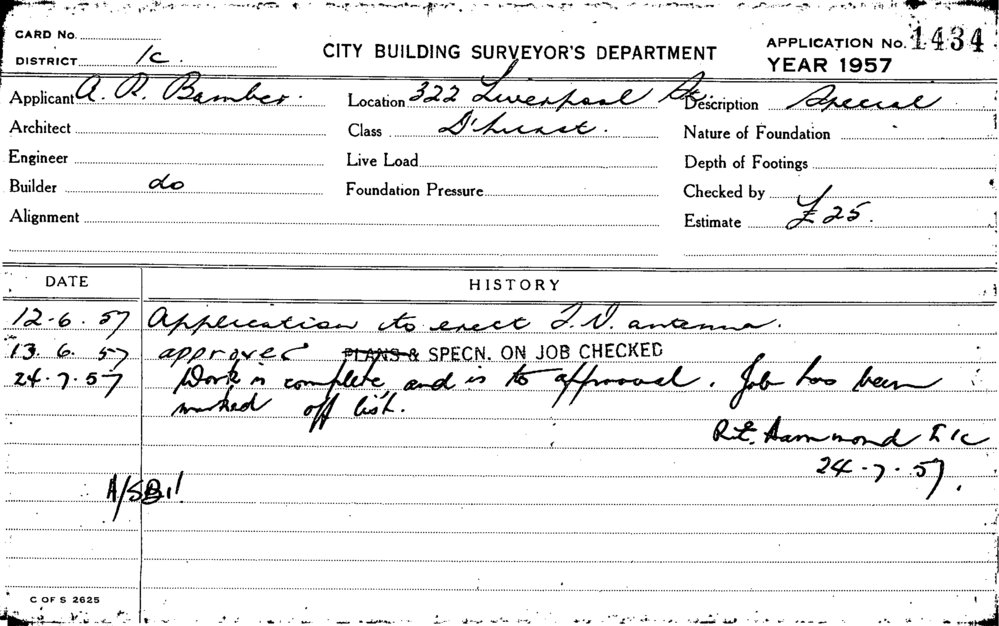 CARD No.
DISTRICT 1c.
CITY BUILDING SURVEYOR'S DEPARTMENT
APPLICATION No. 1434
YEAR 1957
Applicant A. R. Bamber. Location 322 Liverpool St. Description Special
Architect Class D'hurst. Nature of Foundation
Engineer Live Load Depth of Footings
Builder do Foundation Pressure Checked by
Alignment Estimate £25.
DATE HISTORY
12-6.57 Application to erect T.V. antenna.
13.6.57 approved PLANS & SPECN. ON JOB CHECKED
24-7-57 Work is complete and is to approval. Job has been
marked off list.
Hammond
24-7-57.
C OF S 2625